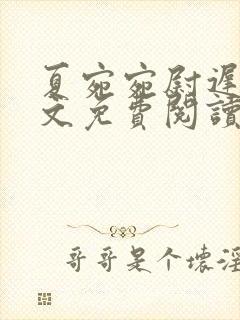 夏宛宛尉遲
文免費閱讀
哥哥是个壞淫